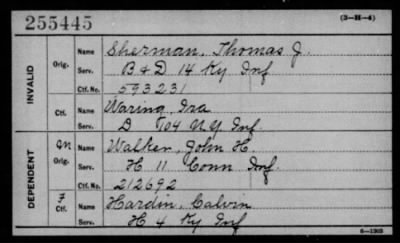 255445 (3-H-4)
INVALID
Orig. Name Sherman, Thomas J.
Serv. B & D 14 Ky Inf
Ctf. No. 593231
Ctf. Name Waring, Ira
Serv. D 104 N.Y. Inf.
DEPENDENT
GM Orig. Name Walker, John H.
Serv. H 11 Conn Inf.
Ctf. No. 212692
F Ctf. Name Hardin, Calvin
Serv. H 4 Ky Inf
6-1303